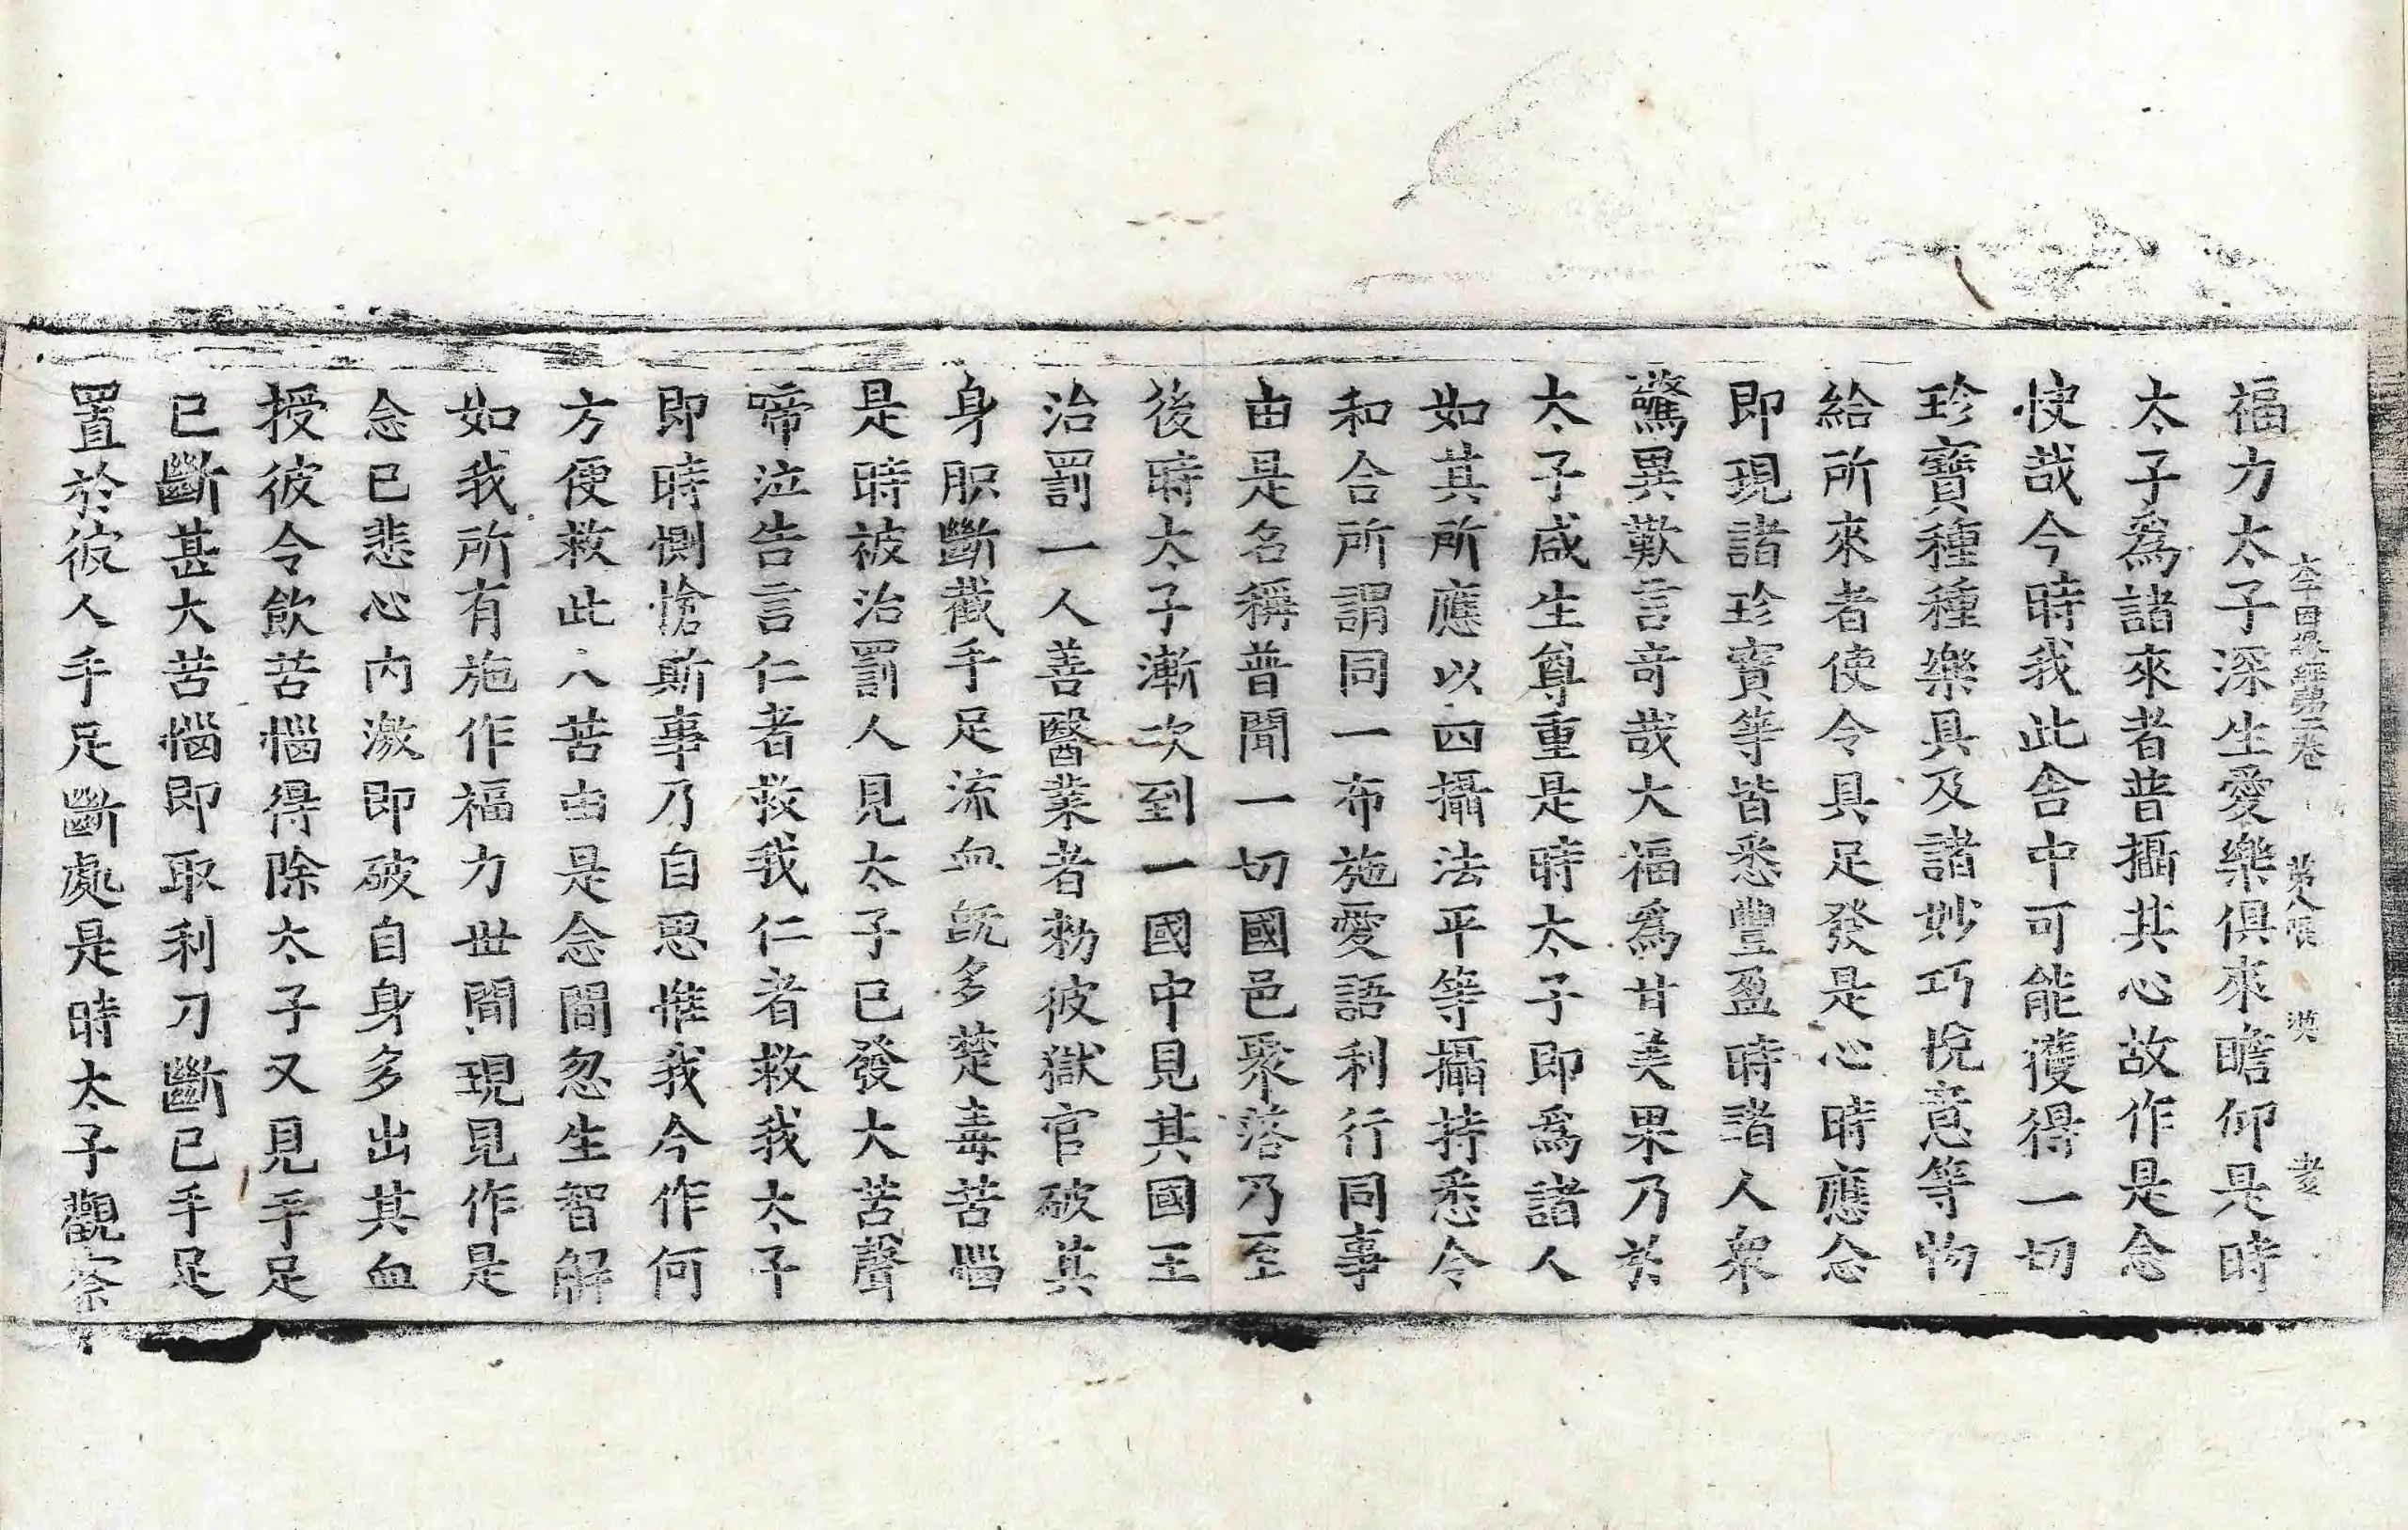 福力太子深生愛樂俱來瞻仰是時
太子為諸來者普攝其心故作是念
快哉今時我此舍中可能獲得一切
珍寶種種樂具及諸妙巧悅意等物
給所來者使令具足發是心時應念
即現諸珍寶等皆悉豐盈時諸人衆
驚異歎言竒哉大福為甘美果乃於
太子咸生尊重是時太子即為諸人
如其所應以四攝法平等攝持悉令
和合所謂同一布施愛語利行同事
由是名稱普聞一切國邑聚落乃至
後時太子漸次到一國中見其國王
治罰一人善醫業者勑彼獄官破其
身胑斷截手足流血旣多楚毒苦惱
是時被治罰人見太子已發大苦聲
啼泣告言仁者救我仁者救我太子
即時惻愴斯事乃自思惟我今作何
方便救此人苦由是念間忽生智解
如我所有施作福力世間現見作是
念已悲心內激即破自身多出其血
授彼令飲苦惱得除太子又見手足
已斷甚大苦惱即取利刀斷已手足
置於彼人手足斷處是時太子觀察